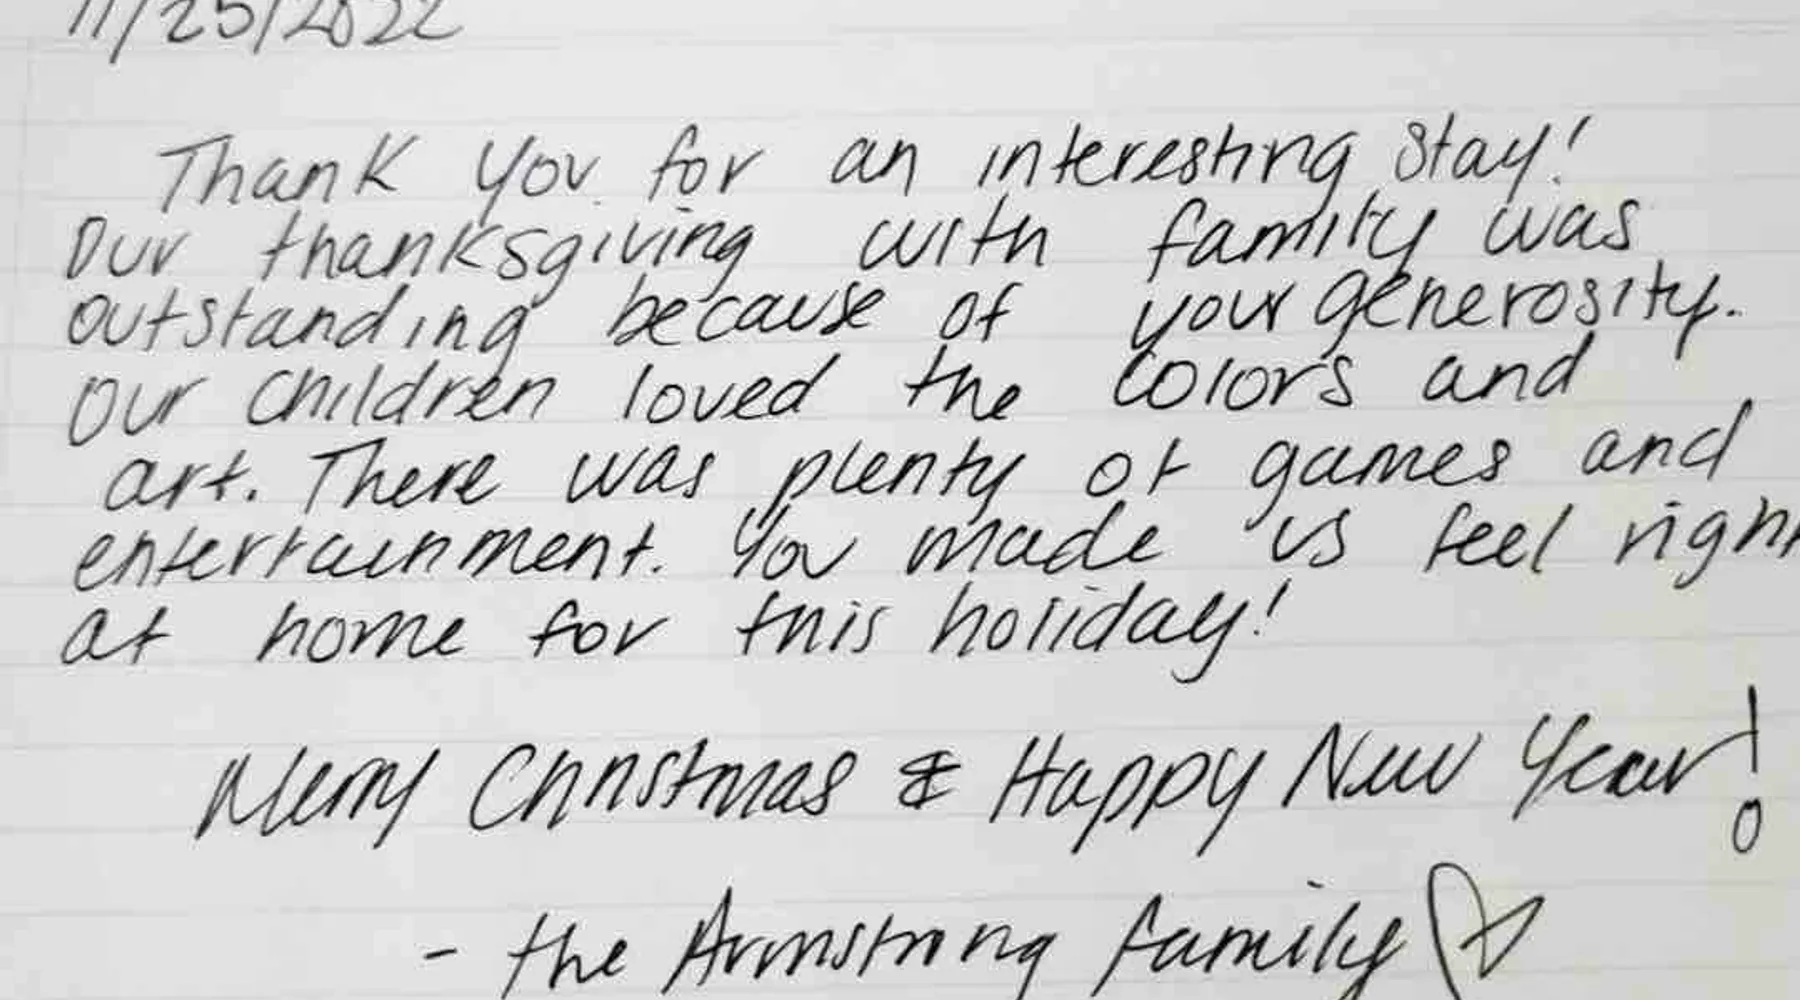 11/25/2022
Thank you for an interesting stay!
Our thanksgiving with family was
outstanding because of your generosity.
Our children loved the colors and
art. There was plenty of games and
entertainment. You made us feel right
at home for this holiday!
Merry Christmas & Happy New Year!
- the Armstrong family